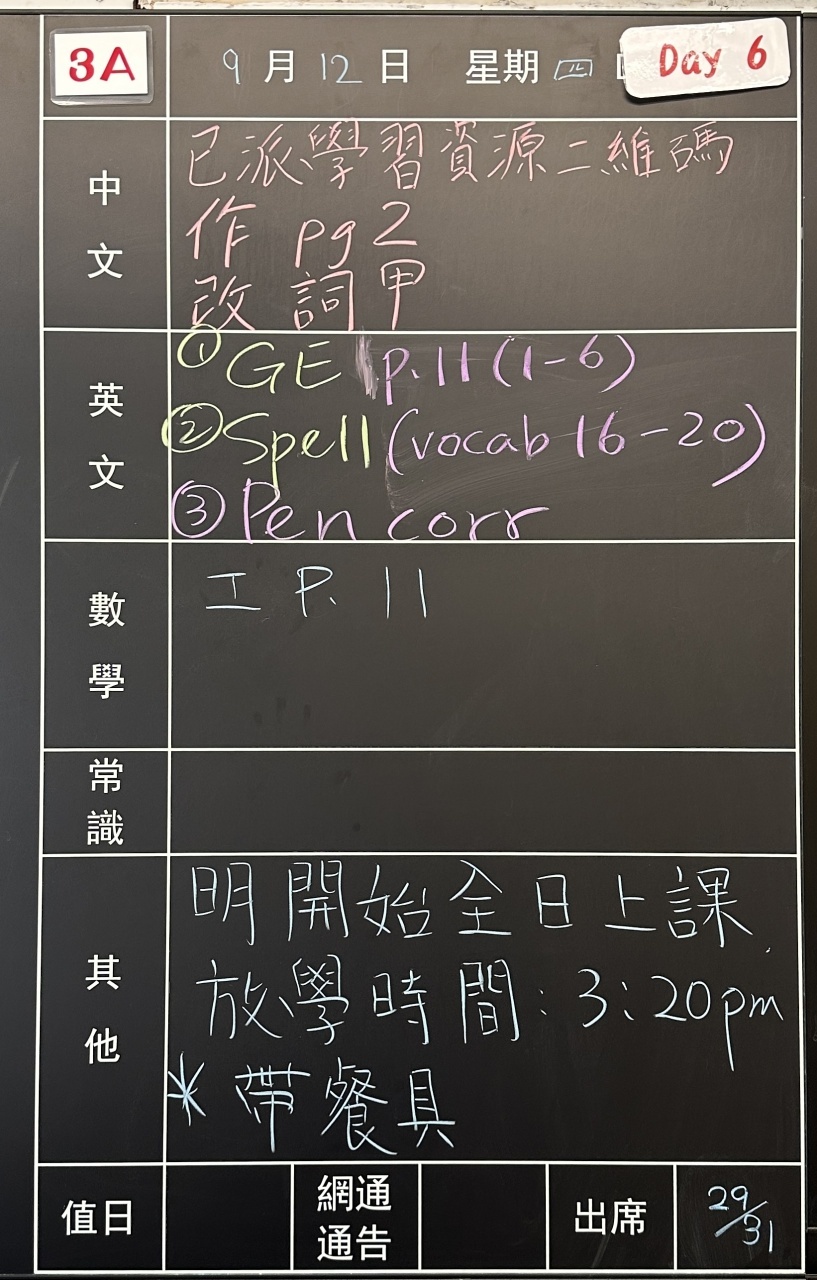 3A
9月12日 星期四 Day 6
中文
已派學習資源二維碼
作 pg 2
改 詞甲
英文
① GE p.11 (1-6)
② Spell (vocab 16-20)
③ Pen corr
數學
工 P. 11
常識
其他
明開始全日上課
放學時間:3:20pm
* 帶餐具
值日
網通
通告
出席
29/31